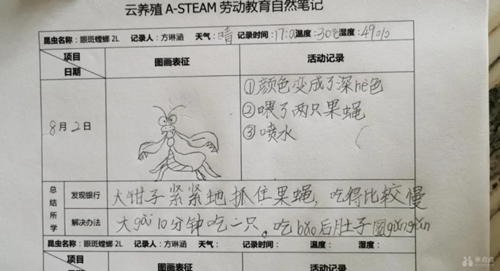 云养殖 A-STEAM 劳动教育自然笔记
昆虫名称：眼斑螳螂 2L 记录人：方琳涵 天气：晴 记录时间：17:0 温度：30℃ 湿度：49%
项目 日期 图画表征 活动记录
8月2日
①颜色变成了深hè色
②喂了两只果蝇
③喷水
总结所学
发现银行 大钳子紧紧地抓住果蝇，吃得比较慢
解决办法 大gài10分钟吃一只，吃bǎo后肚子圆gǔngǔn
昆虫名称：眼斑螳螂 2L 记录人：方琳涵 天气： 记录时间： 温度： 湿度：
项目 图画表征 活动记录